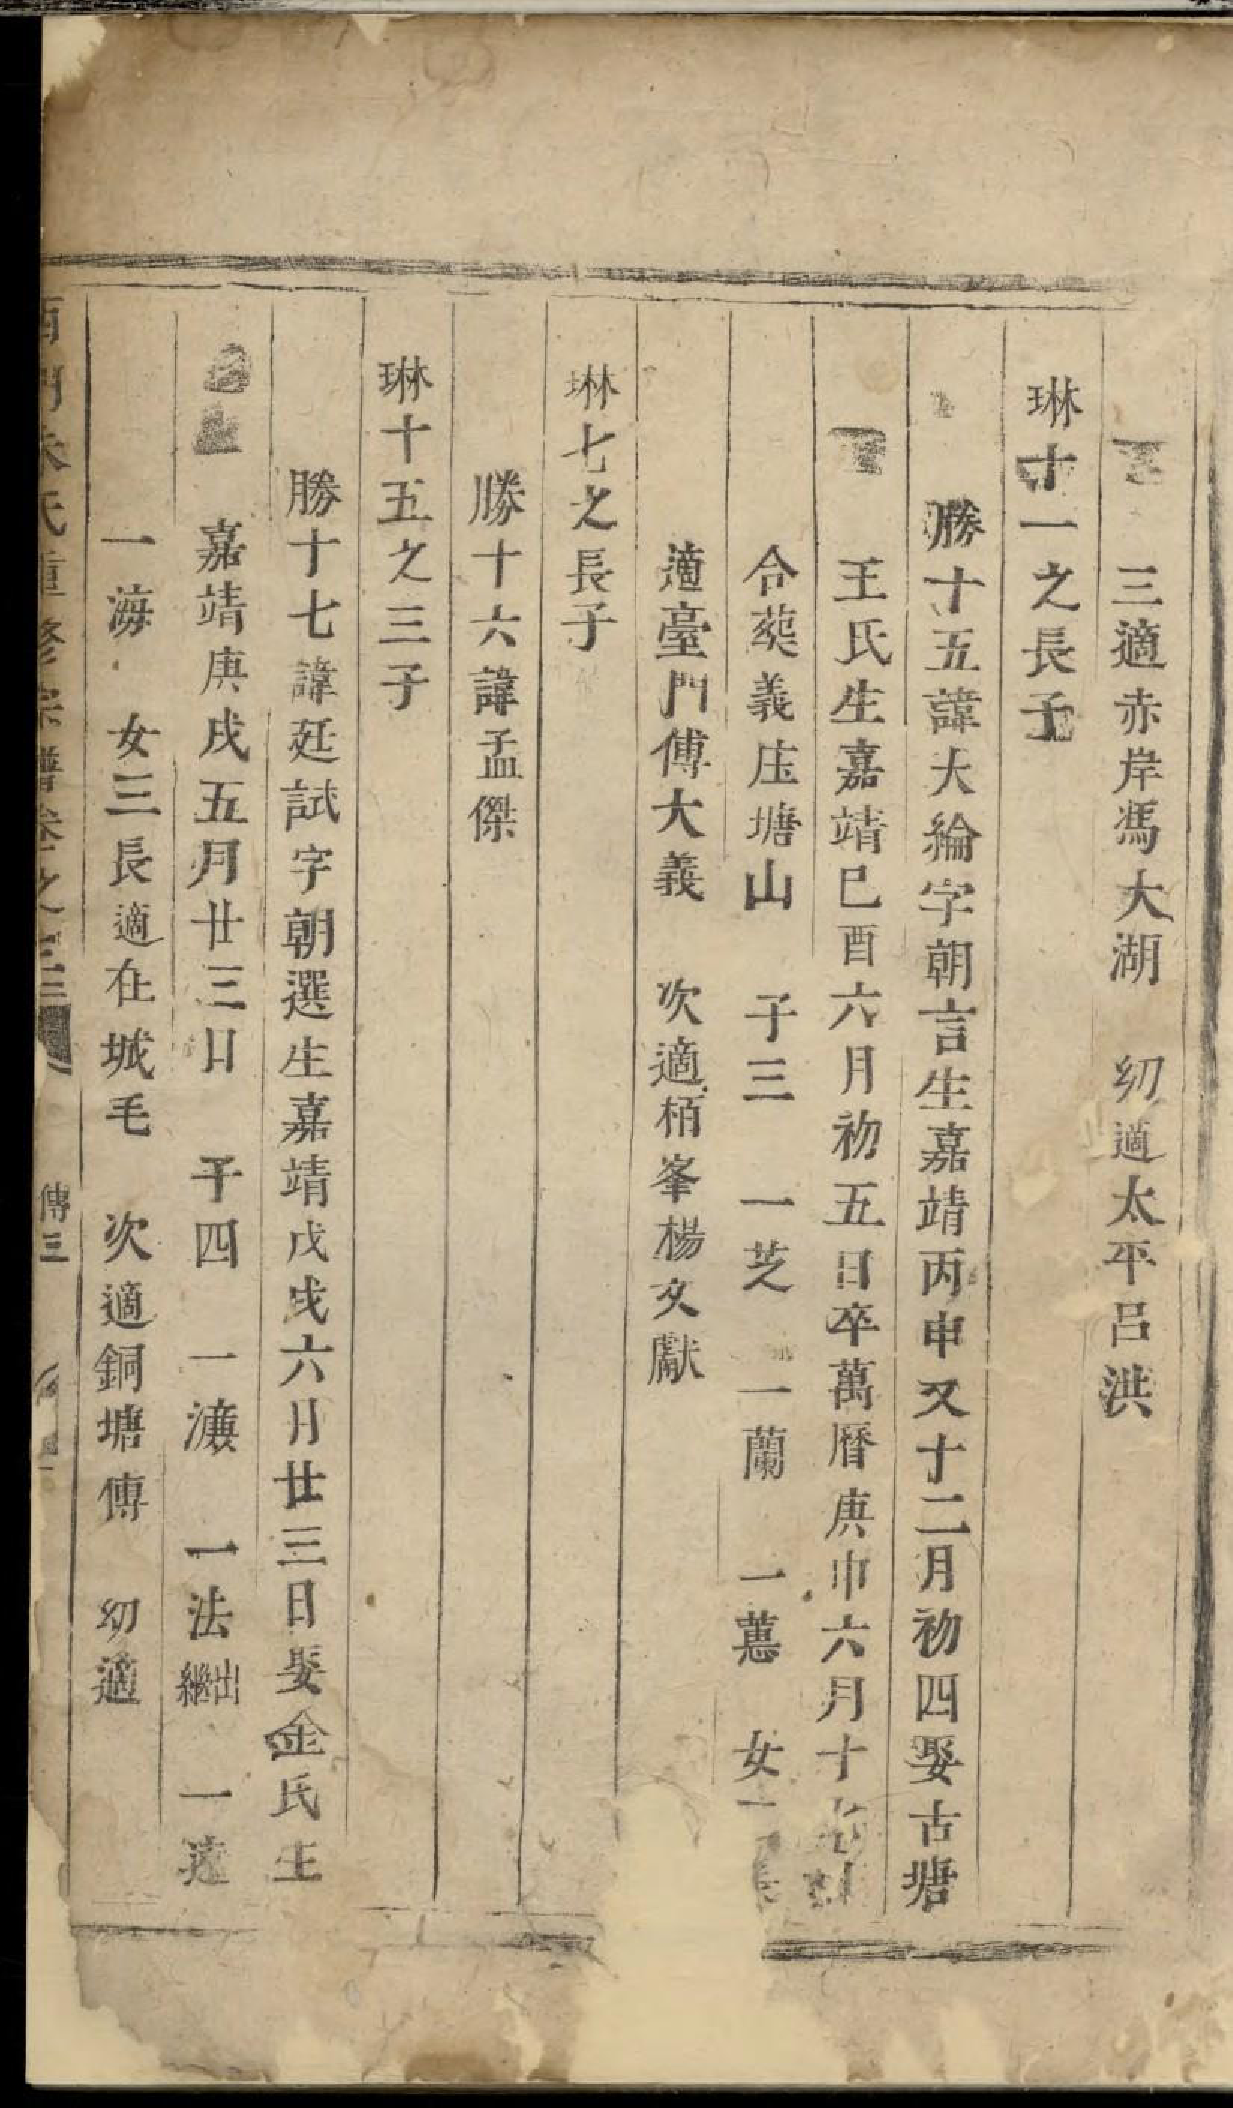 三適赤岸馮大湖　幼適太平呂洪
琳十一之長子
勝十五諱大綸字朝言生嘉靖丙申又十二月初四娶古塘
王氏生嘉靖巳酉六月初五日卒萬曆庚申六月十
合葬義庄塘山　子三　一芝　一蘭　一蕙　女
適臺門傅大義　次適栢峯楊文獻
琳七之長子
勝十六諱孟傑
琳十五之三子
勝十七諱廷試字朝選生嘉靖戊戌六月廿三日娶金氏生
嘉靖庚戌五月廿三日　子四　一濂　一法出繼　一遠
一海　女三長適在城毛　次適銅塘傅　幼適
西門朱氏重修宗譜卷之　傳三